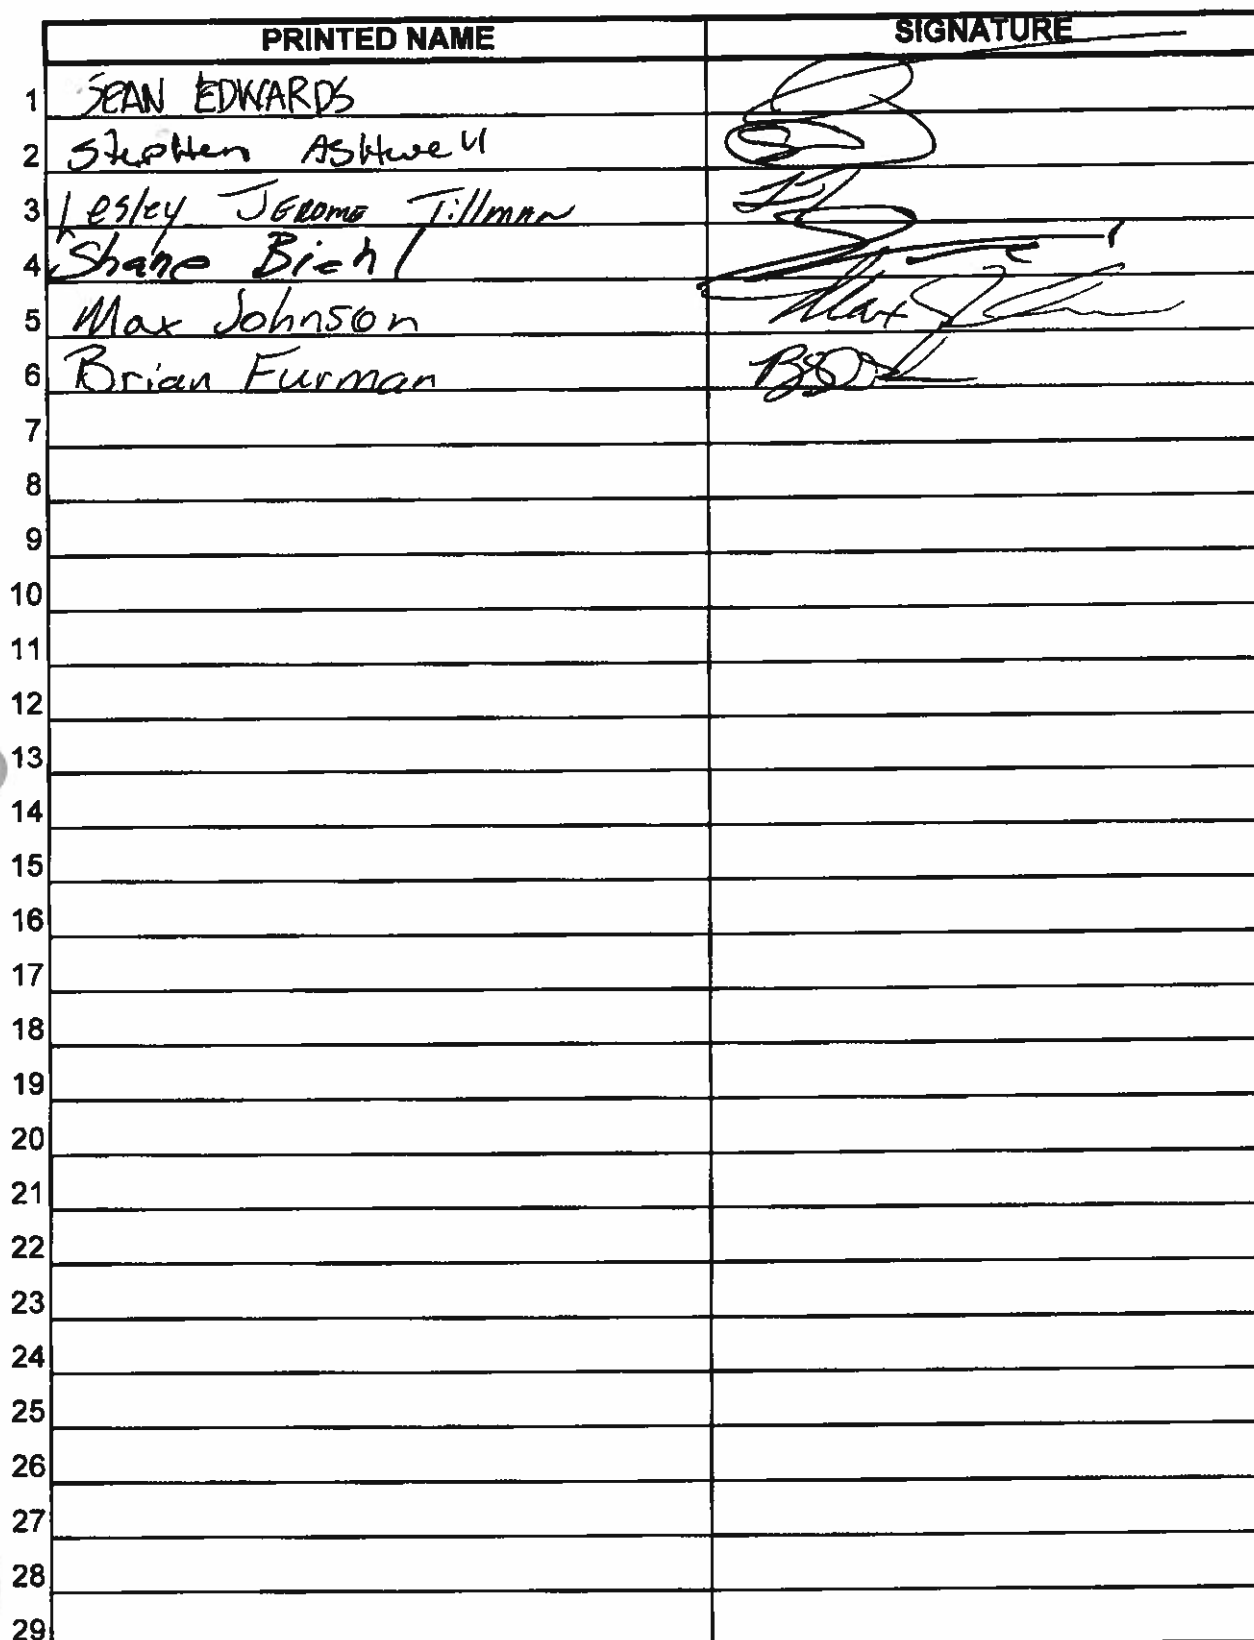 PRINTED NAME SIGNATURE
1 SEAN EDWARDS
2 Stephen Ashwell
3 Lesley Jerome Tillman
4 Shane Biehl
5 Max Johnson Max J
6 Brian Furman
7
8
9
10
11
12
13
14
15
16
17
18
19
20
21
22
23
24
25
26
27
28
29